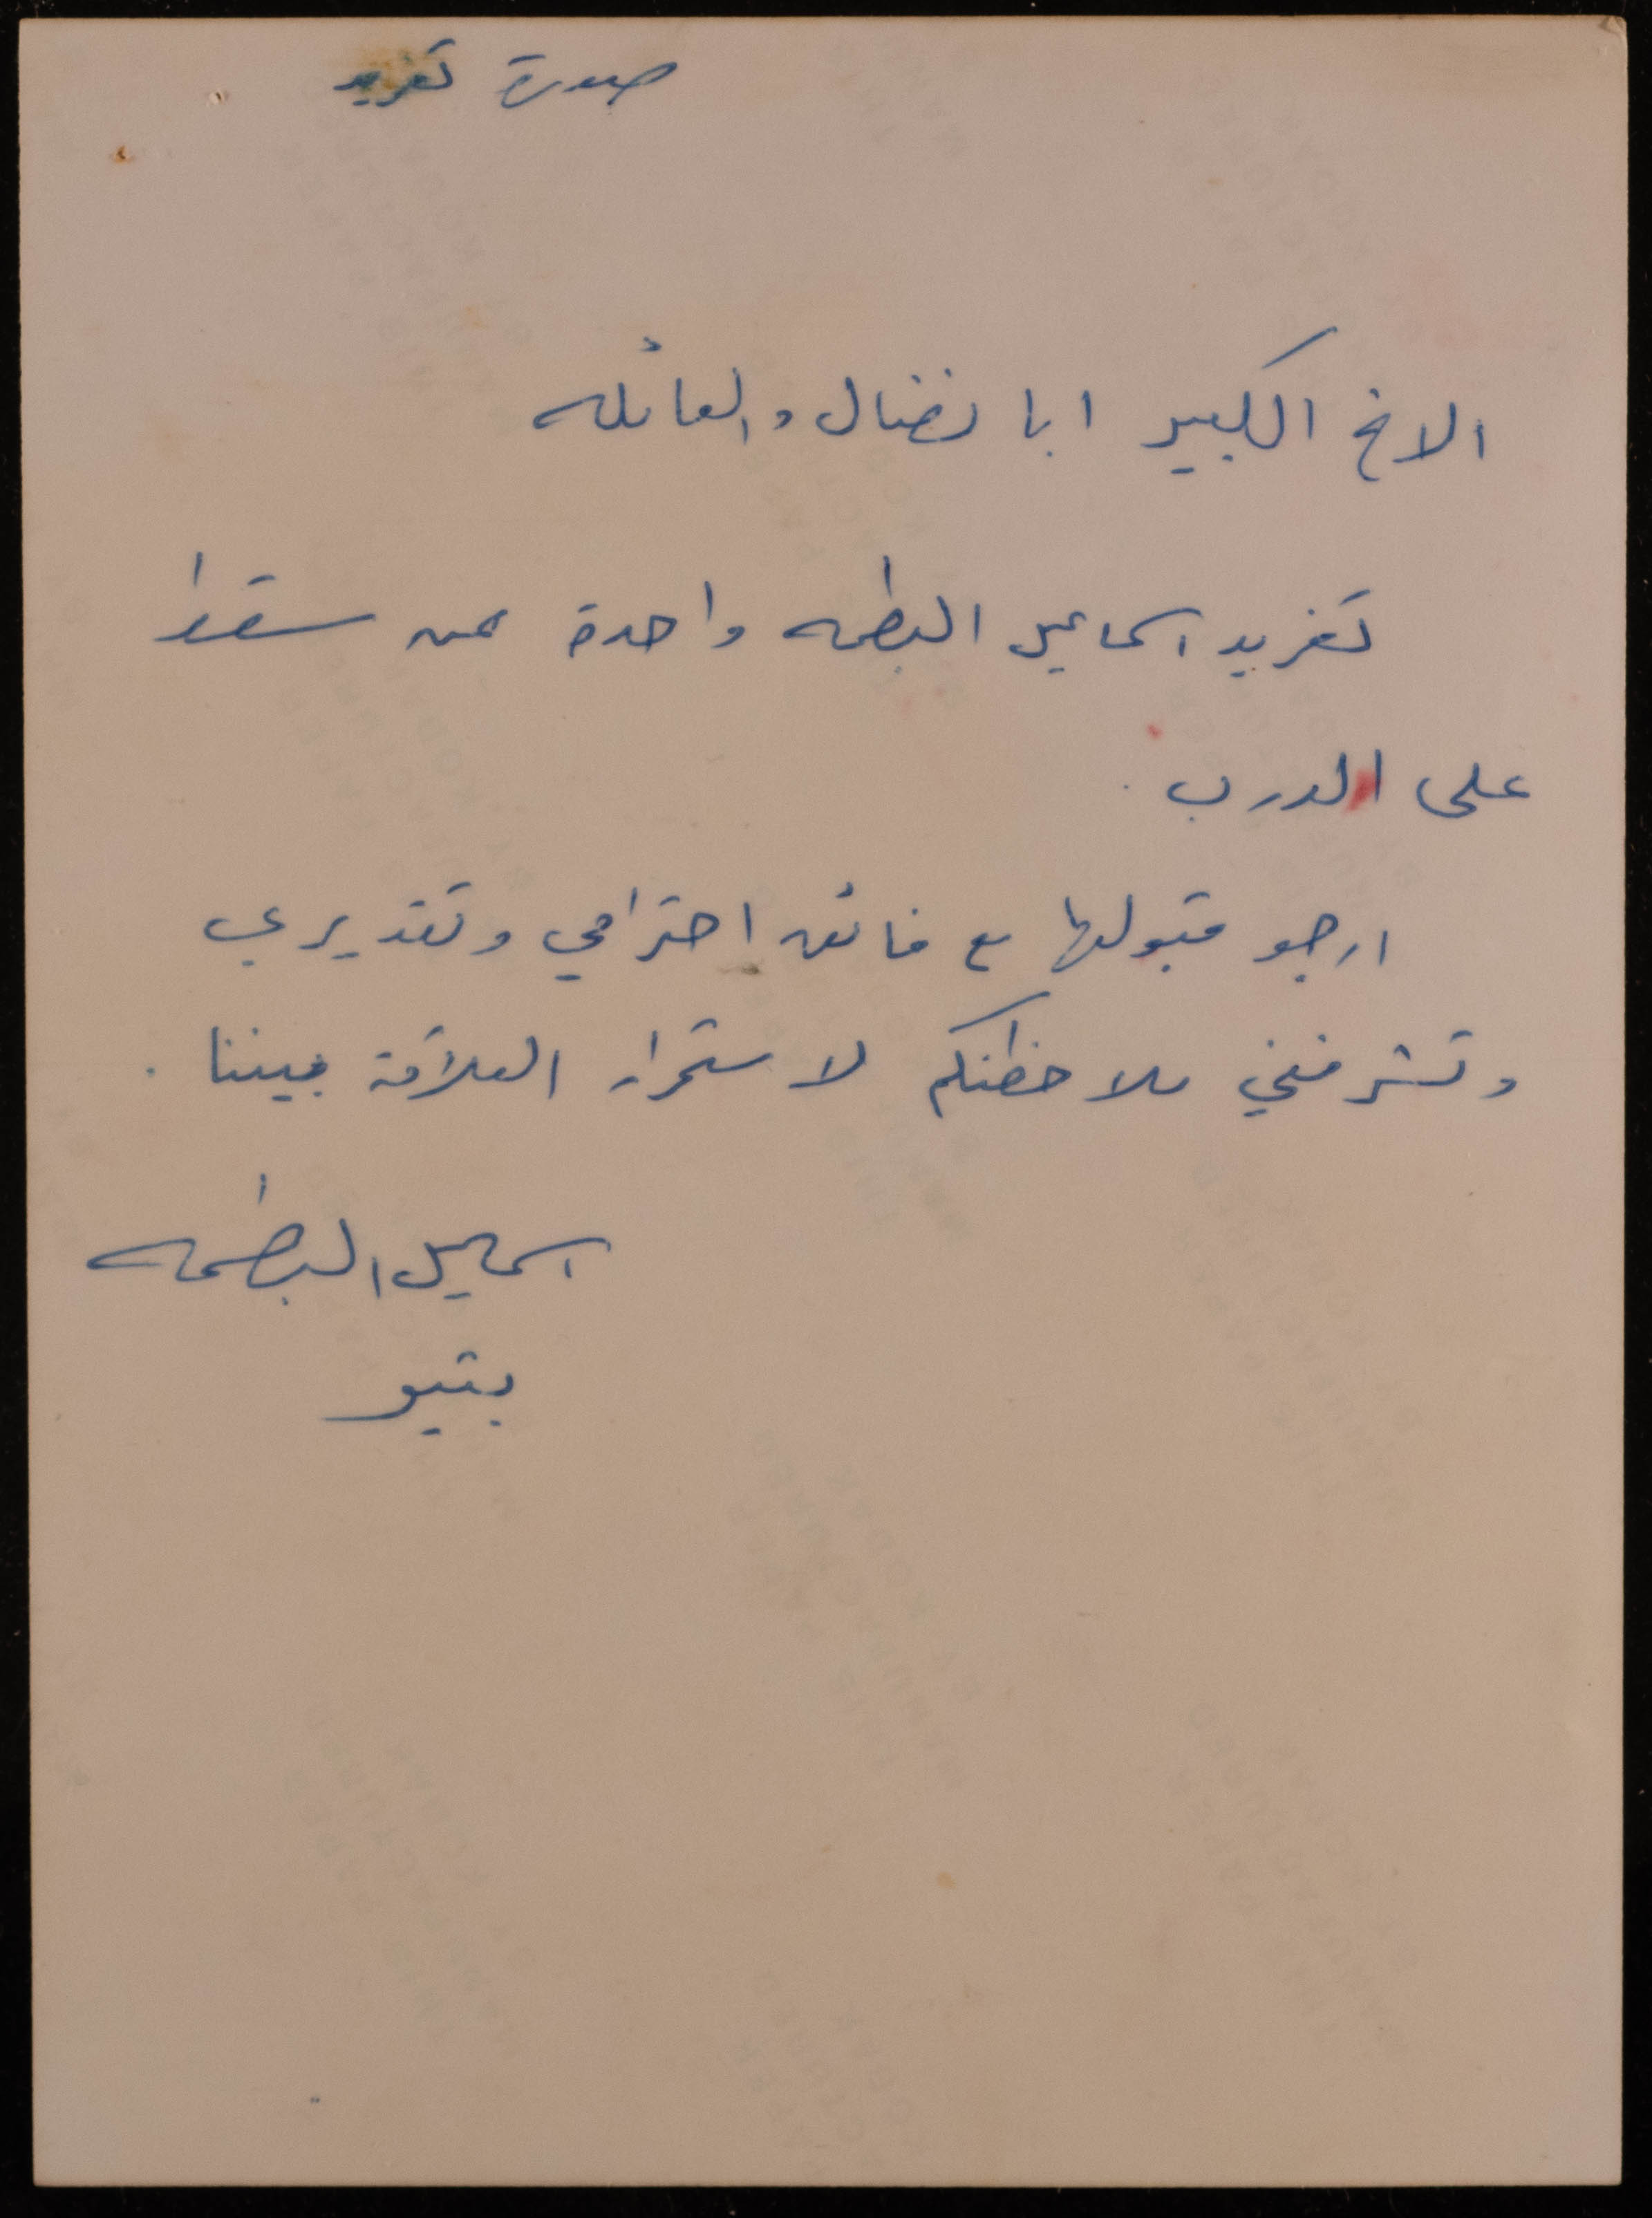 صورة تغريد
الاخ الكبير ابا نضال والعائله
تغريد اسماعيل البطمه واحدة ممن سقطوا
على الدرب .
ارجو قبولها مع فائق احترامي وتقديري
وتشرفني ملاحظتكم لاستمرار العلاقة بيننا .
اسماعيل البطمه
بتير